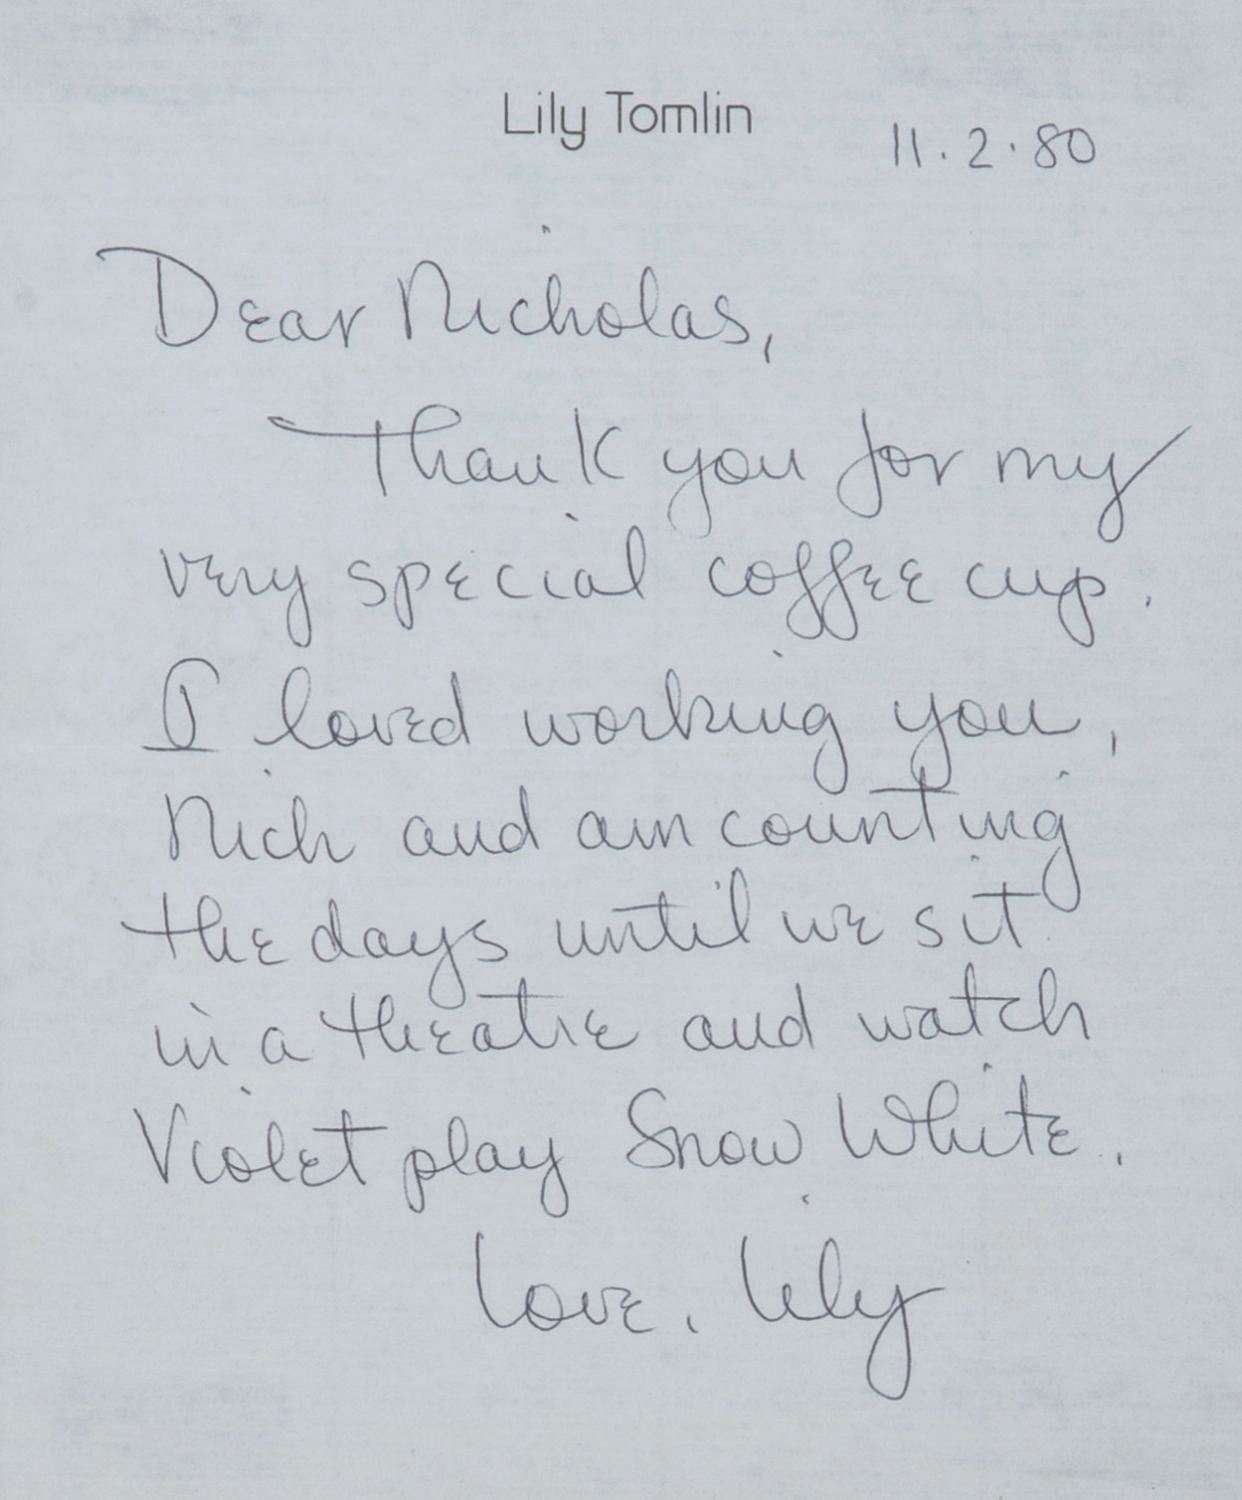 Lily Tomlin
11.2.80
Dear Nicholas,
Thank you for my
very special coffee cup.
I loved working you,
Nich and am counting
the days until we sit
in a theatre and watch
Violet play Snow White.
Love, Lily